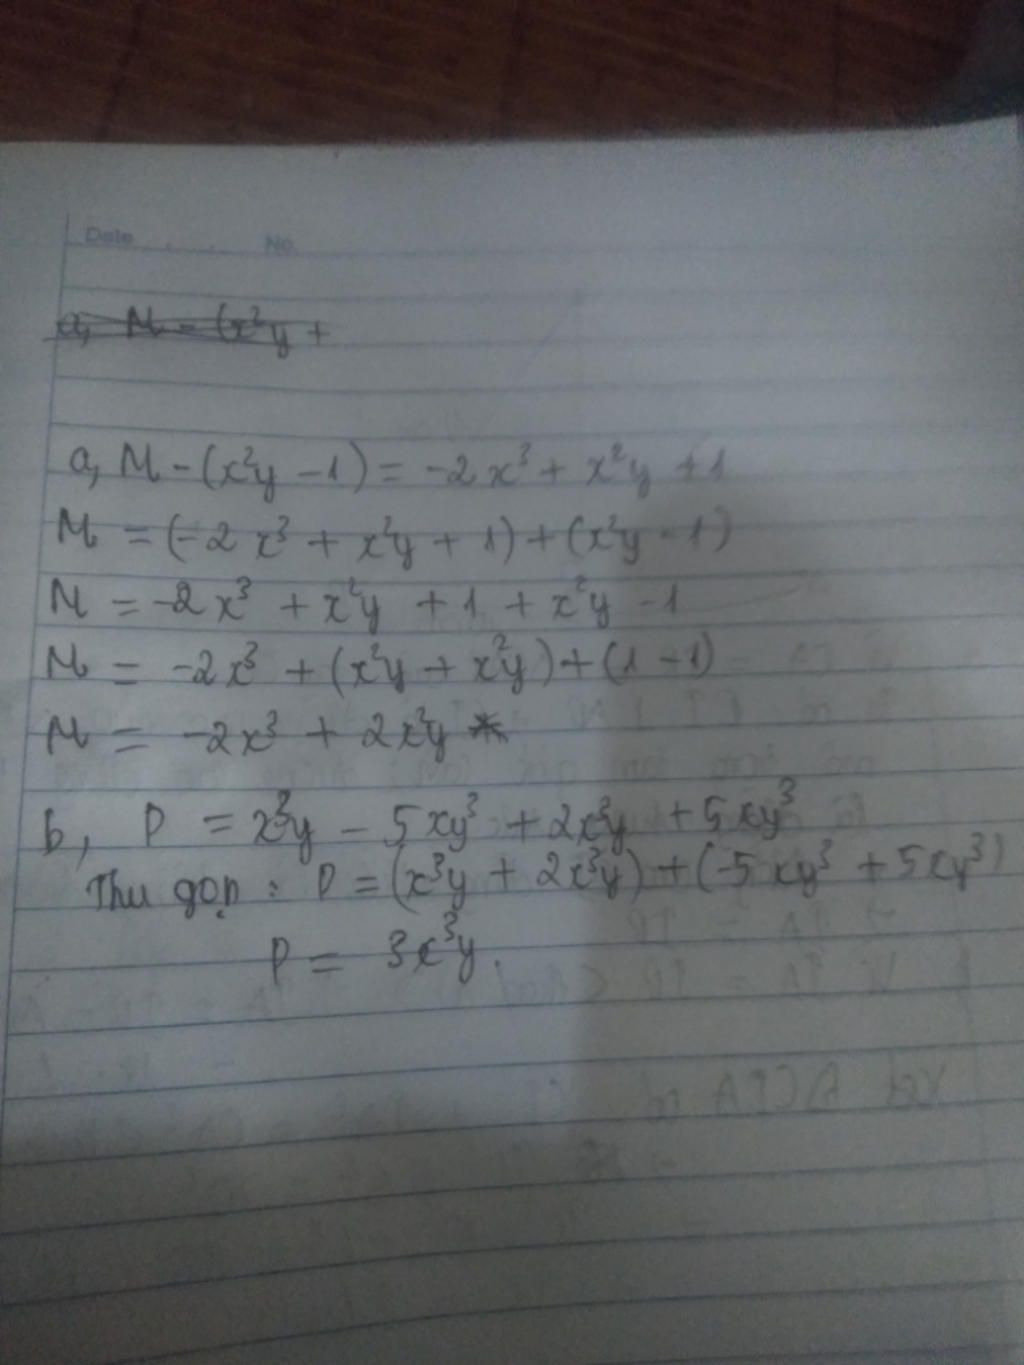 Date No.
a, M - (x²y +
a, M - (x²y - 1) = -2x³ + x²y + 1
M = (-2x³ + x²y + 1) + (x²y - 1)
M = -2x³ + x²y + 1 + x²y - 1
M = -2x³ + (x²y + x²y) + (1 - 1)
M = -2x³ + 2x²y
b, P = x³y - 5xy³ + 2x³y + 5xy³
Thu gọn : P = (x³y + 2x³y) + (-5xy³ + 5xy³)
P = 3x³y.